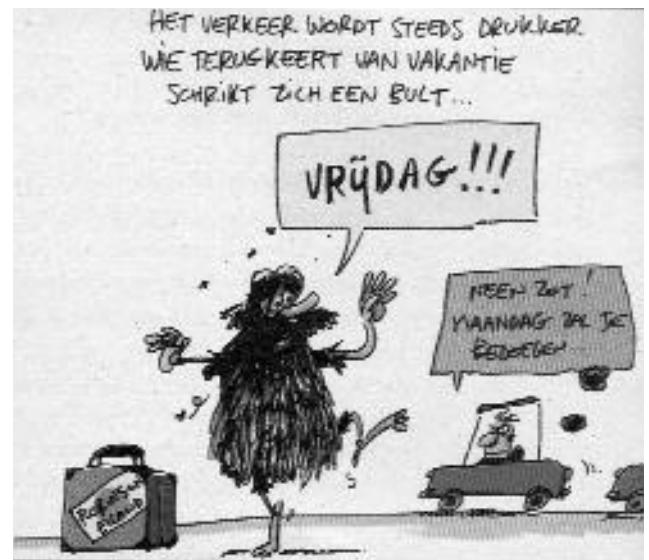 HET VERKEER WORDT STEEDS DRUKKER
WIE TERUGKEERT VAN VAKANTIE
SCHRIKT ZICH EEN BULT...
VRIJDAG!!!
NEEN ZOT!
MAANDAG ZAL JE
BEDOELEN...